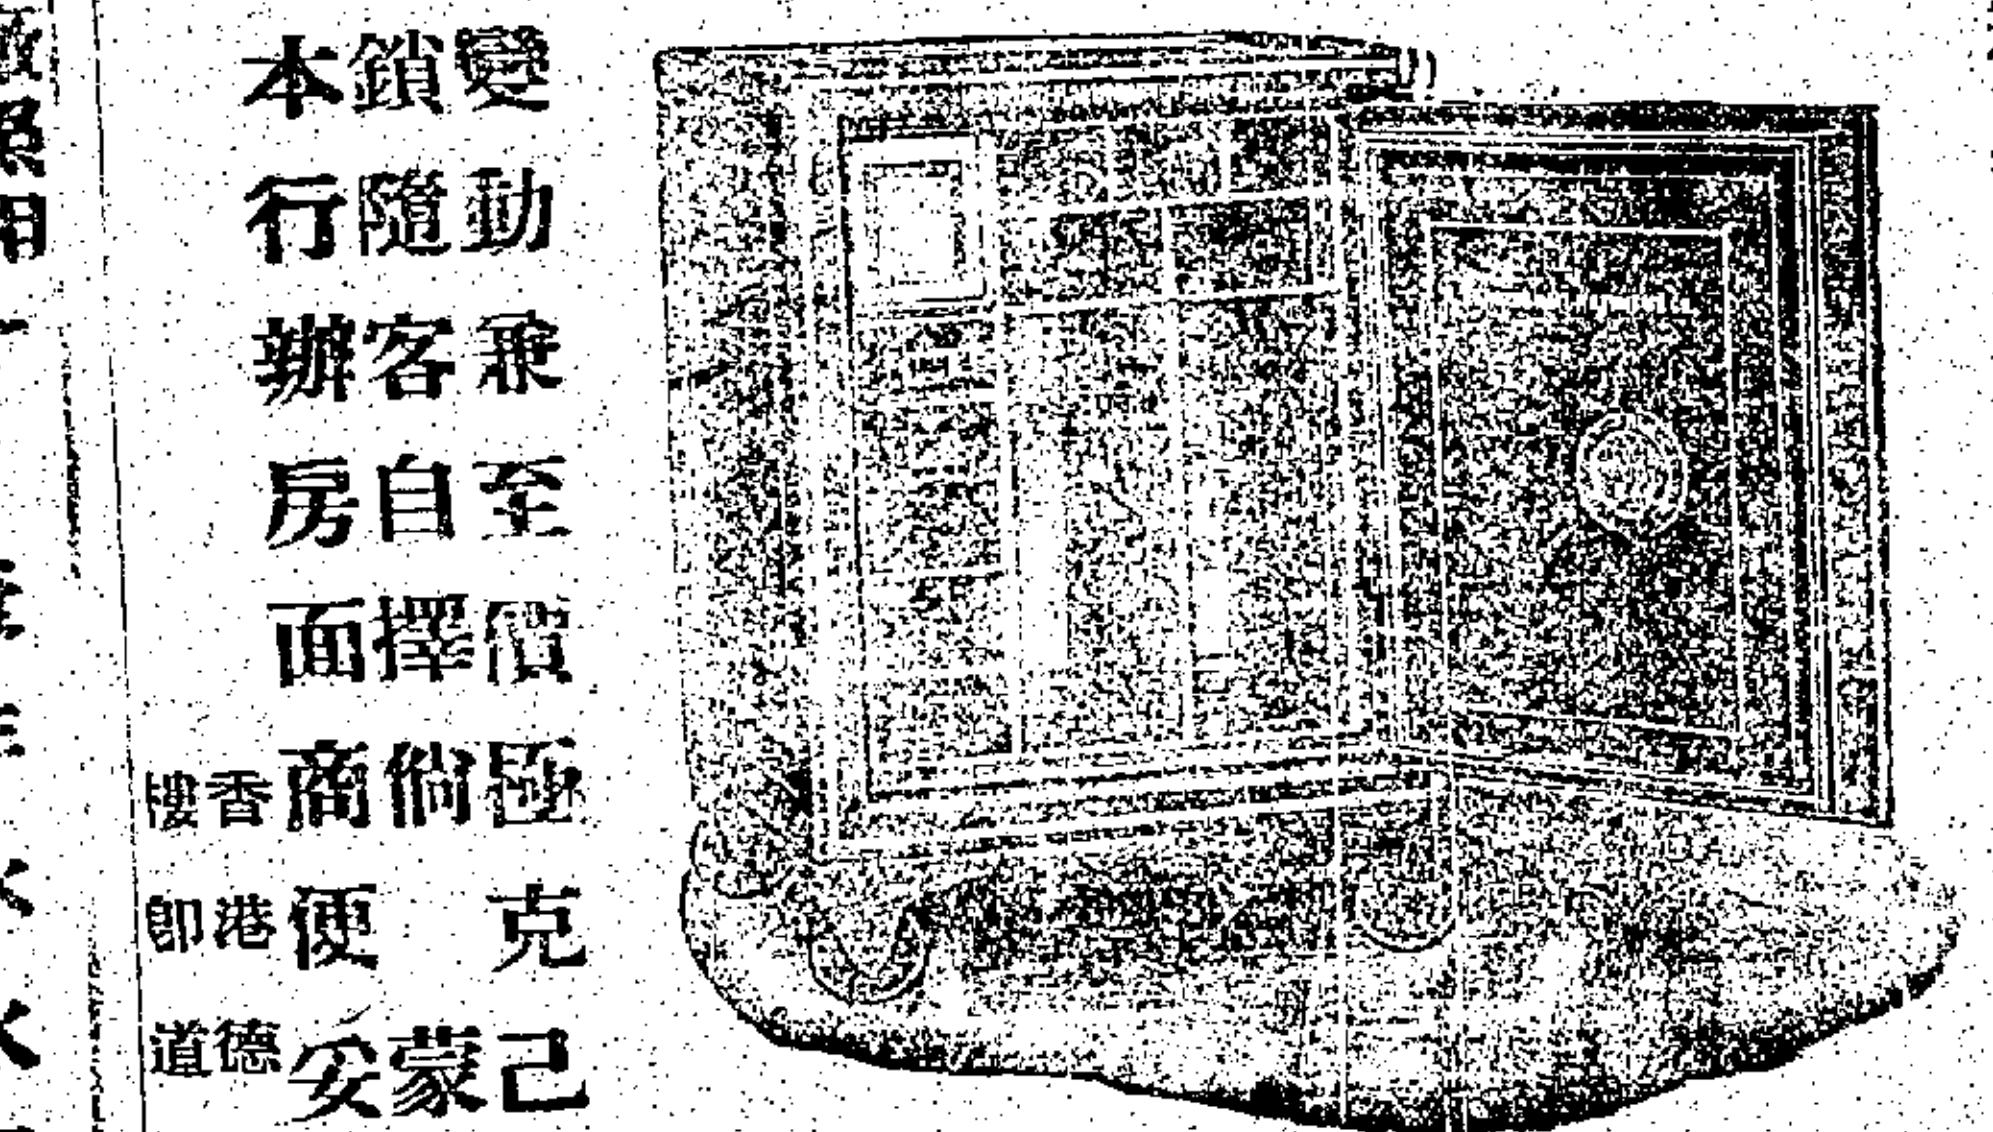 變動兼至價極克己
鎖隨客自擇倘蒙
本行辦房面商便妥
香港德
樓即道